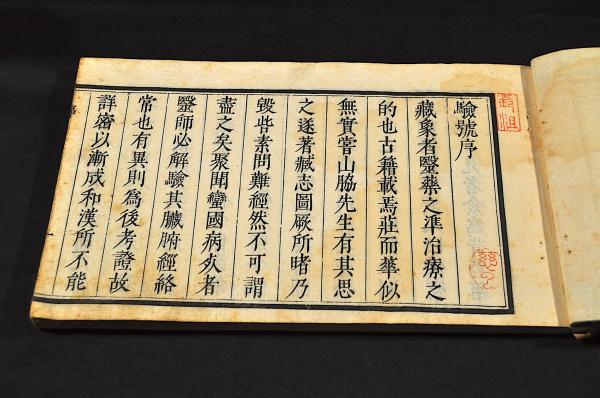 驗號序
藏象者毉藥之準治療之
的也古籍載焉莊而華似
無實嘗山脇先生有其思
之遂著臧志圖厥所睹乃
毀呰素問難經然不可謂
盡之矣聞蠻國病者
毉師必解驗其臟腑經絡
常也有異則爲後考證故
詳密以漸成和漢所不能